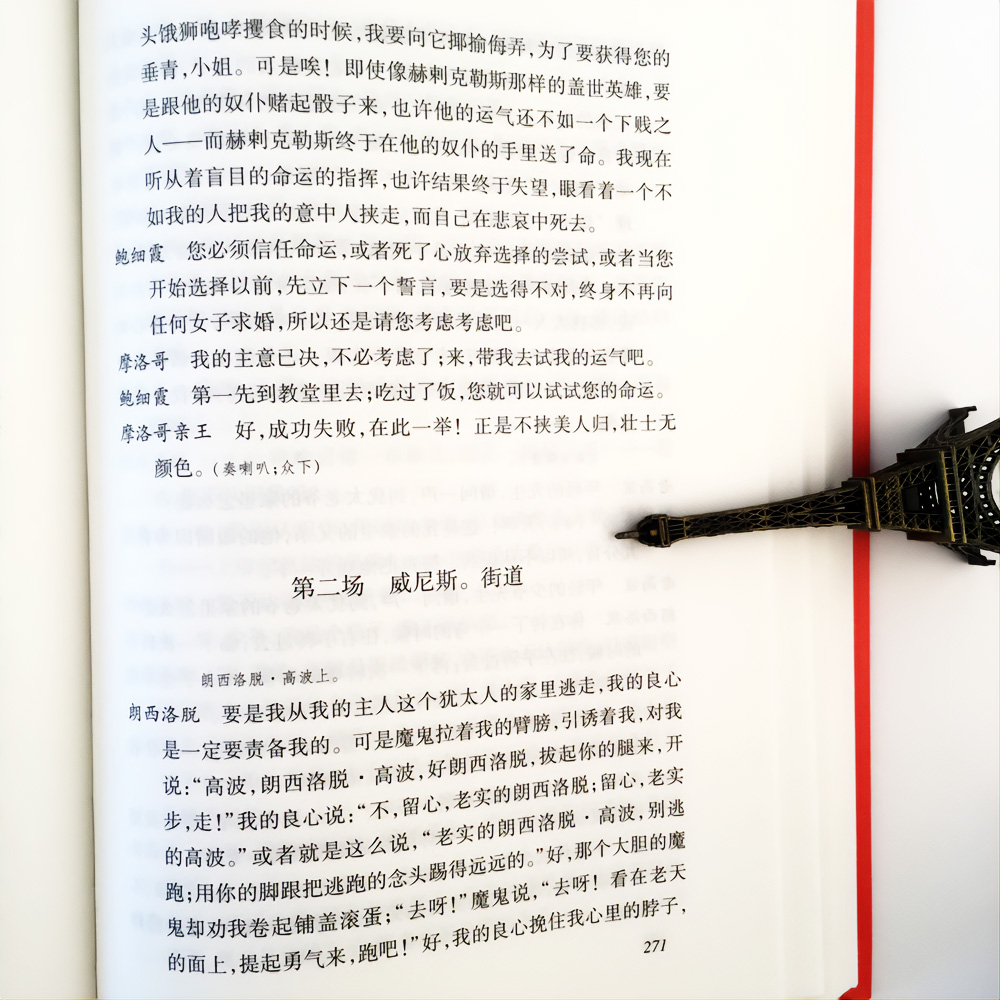 头饿狮咆哮攫食的时候，我要向它揶揄侮弄，为了要获得您的
垂青，小姐。可是唉！即使像赫剌克勒斯那样的盖世英雄，要
是跟他的奴仆赌起骰子来，也许他的运气还不如一个下贱之
人——而赫剌克勒斯终于在他的奴仆的手里送了命。我现在
听从着盲目的命运的指挥，也许结果终于失望，眼看着一个不
如我的人把我的意中人挟走，而自己在悲哀中死去。
鲍细霞　您必须信任命运，或者死了心放弃选择的尝试，或者当您
开始选择以前，先立下一个誓言，要是选得不对，终身不再向
任何女子求婚，所以还是请您考虑考虑吧。
摩洛哥　我的主意已决，不必考虑了；来，带我去试我的运气吧。
鲍细霞　第一先到教堂里去；吃过了饭，您就可以试试您的命运。
摩洛哥亲王　好，成功失败，在此一举！正是不挟美人归，壮士无
颜色。（奏喇叭；众下）
第二场　威尼斯。街道
朗西洛脱·高波上。
朗西洛脱　要是我从我的主人这个犹太人的家里逃走，我的良心
是一定要责备我的。可是魔鬼拉着我的臂膀，引诱着我，对我
说：“高波，朗西洛脱·高波，好朗西洛脱，拔起你的腿来，开
步，走！”我的良心说：“不，留心，老实的朗西洛脱；留心，老实
的高波。”或者就是这么说，“老实的朗西洛脱·高波，别逃
跑；用你的脚跟把逃跑的念头踢得远远的。”好，那个大胆的魔
鬼却劝我卷起铺盖滚蛋；“去呀！”魔鬼说，“去呀！看在老天
的面上，提起勇气来，跑吧！”好，我的良心挽住我心里的脖子，
271